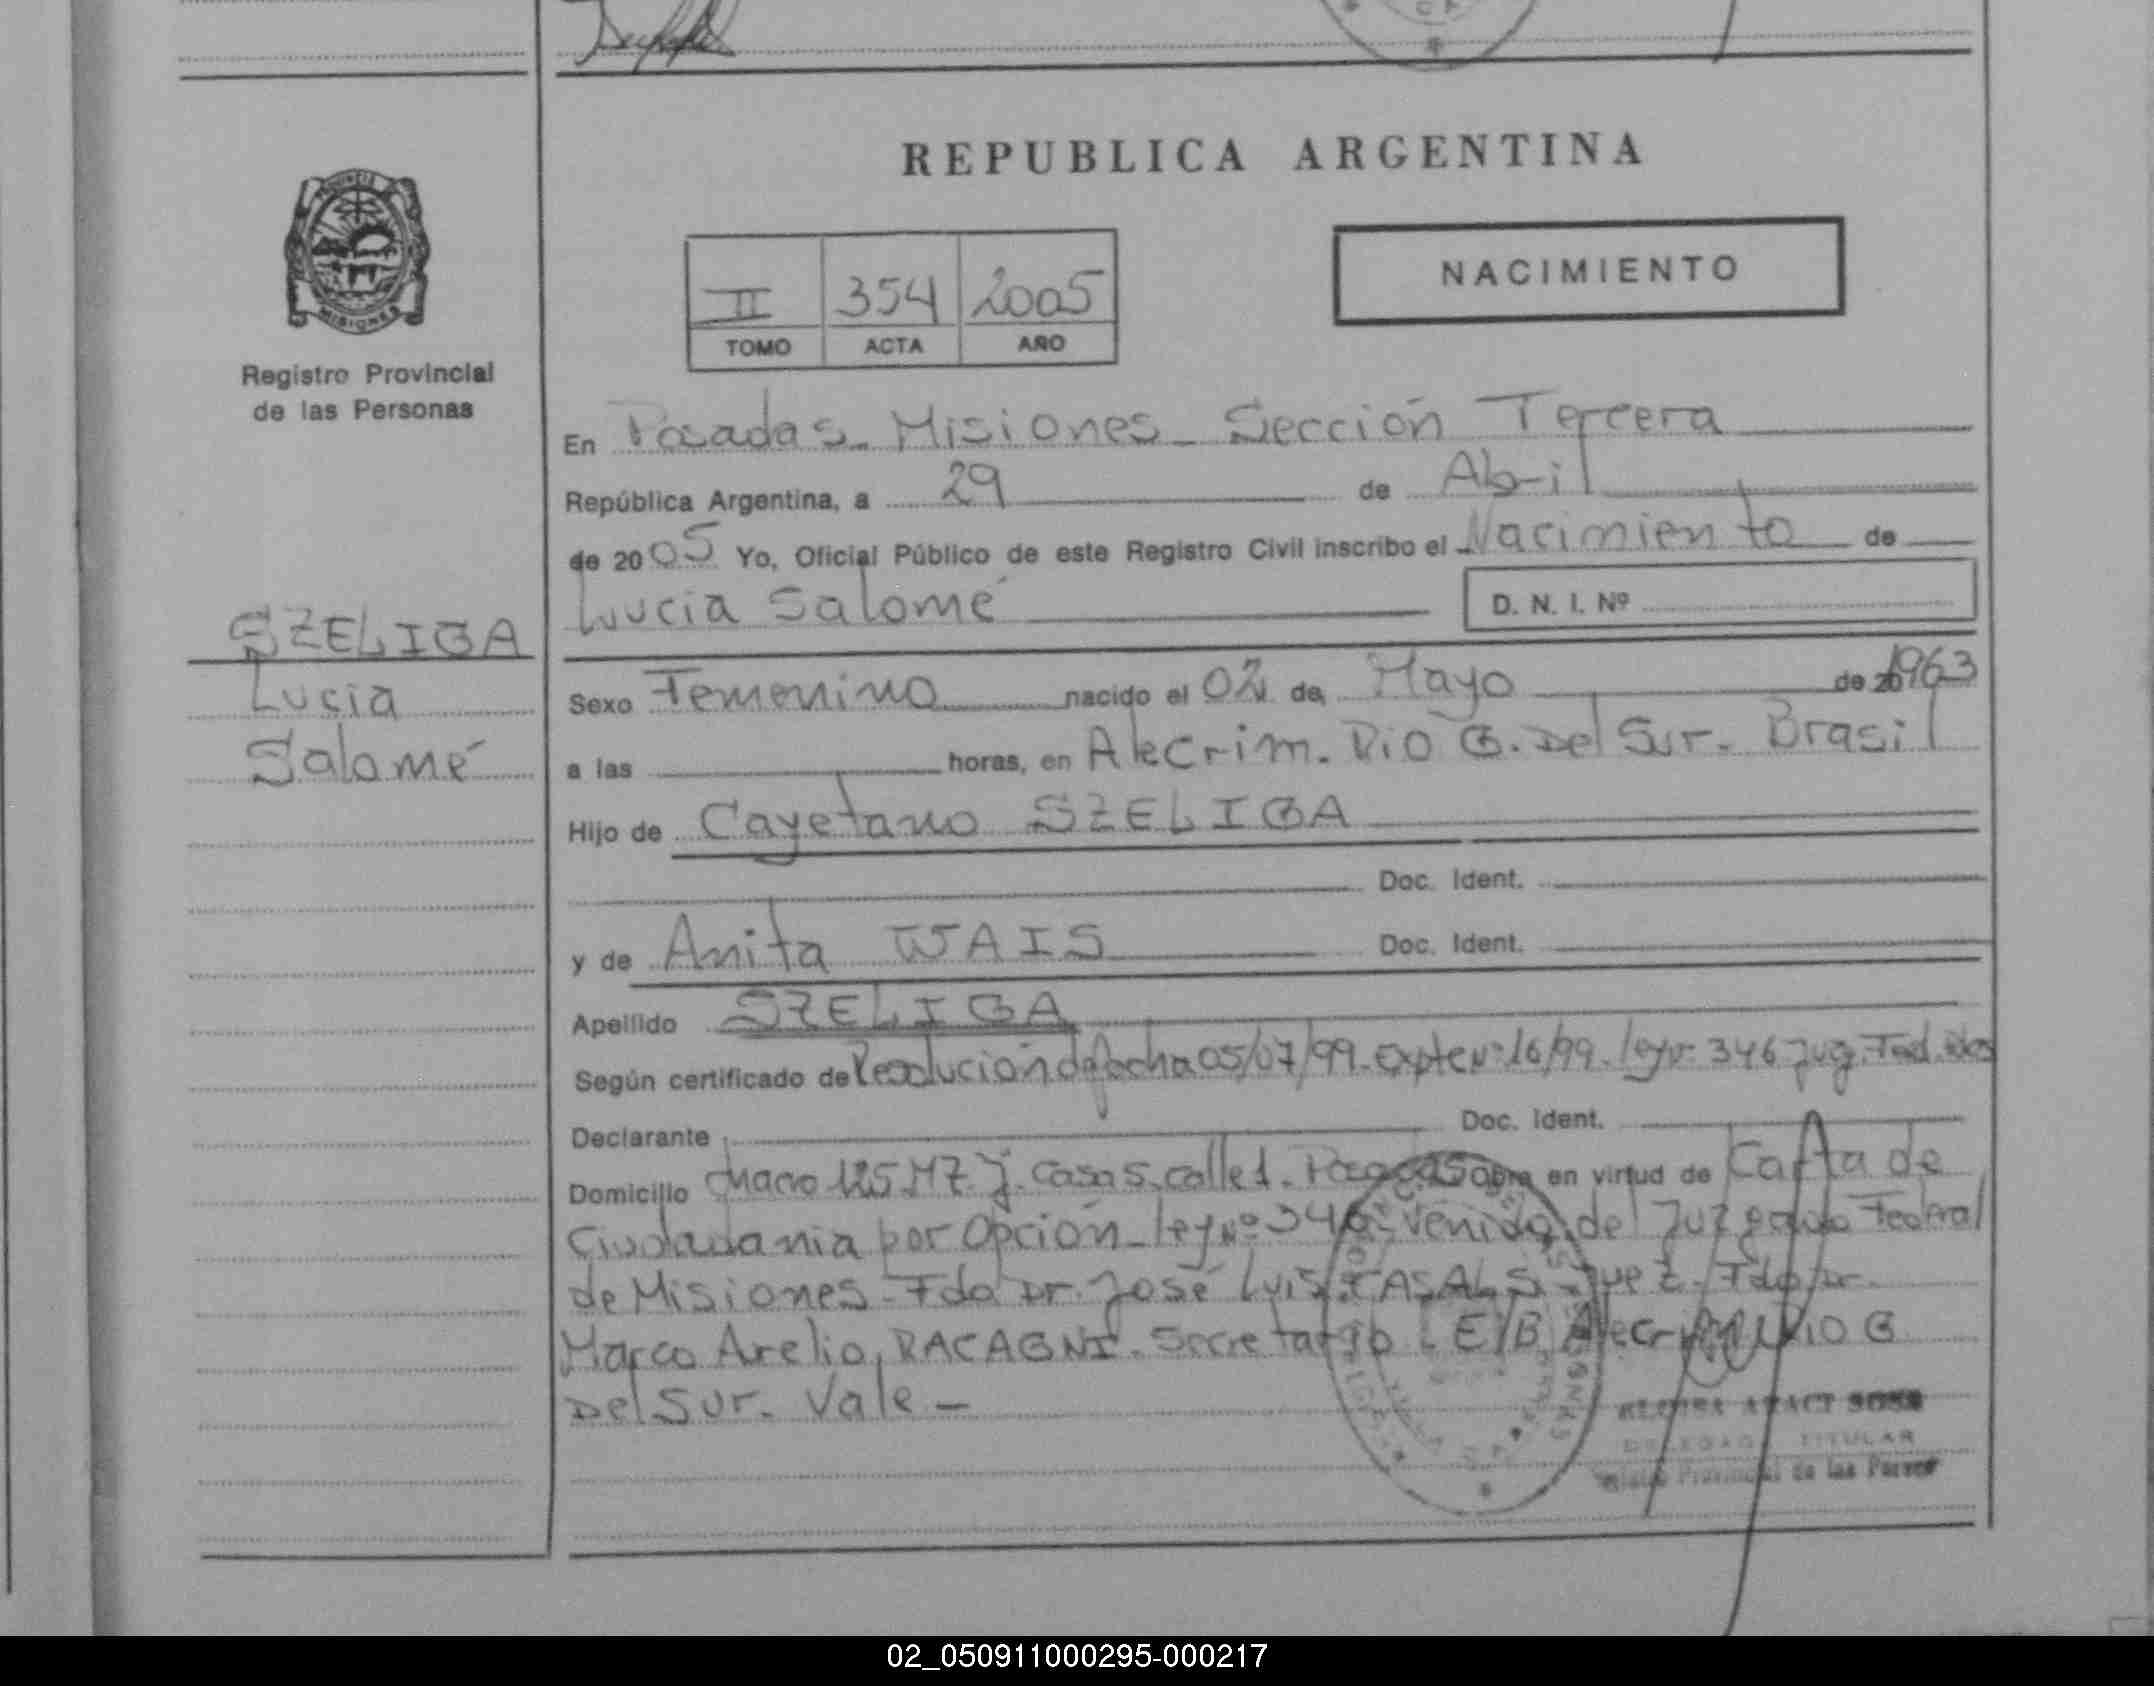 REPUBLICA ARGENTINA
PROVINCIA
MISIONES
Registro Provincial
de las Personas
II 354 2005
TOMO ACTA AÑO
NACIMIENTO
En Posadas - Misiones - Sección Tercera
República Argentina, a 29 de Abril
de 2005 Yo, Oficial Público de este Registro Civil inscribo el Nacimiento de
Lucia Salomé D. N. I. Nº
SZELIGA
Lucia
Salomé
Sexo Femenino nacido el 02 de Mayo de 20 1963
a las horas, en Alecrim. Rio G. Del Sur. Brasil
Hijo de Cayetano SZELIGA
Doc. Ident.
y de Anita WAIS Doc. Ident.
Apellido SZELIGA
Según certificado de Resolución de fecha 05/07/99. Expte Nº 16/99. ley Nº 346 Juz. Fed.
Declarante Doc. Ident.
Domicilio chacra 125 MZ. J. casa 5. calle 1. Posadas obra en virtud de Carta de
Ciudadania por Opción - ley Nº 346 - venido del Juzgado Federal
de Misiones - Fdo Dr. José Luis CASALS - Juez. Fdo Dr.
Marco Arelio RACAGNI. Secretario - E/B Alecrim Rio G
Del Sur. Vale -
DELEGADO TITULAR
Registro Provincial de las Personas
02_050911000295-000217